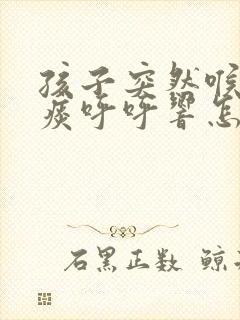 孩子突然喉
痰呼呼響怎
石黑正数 鲸